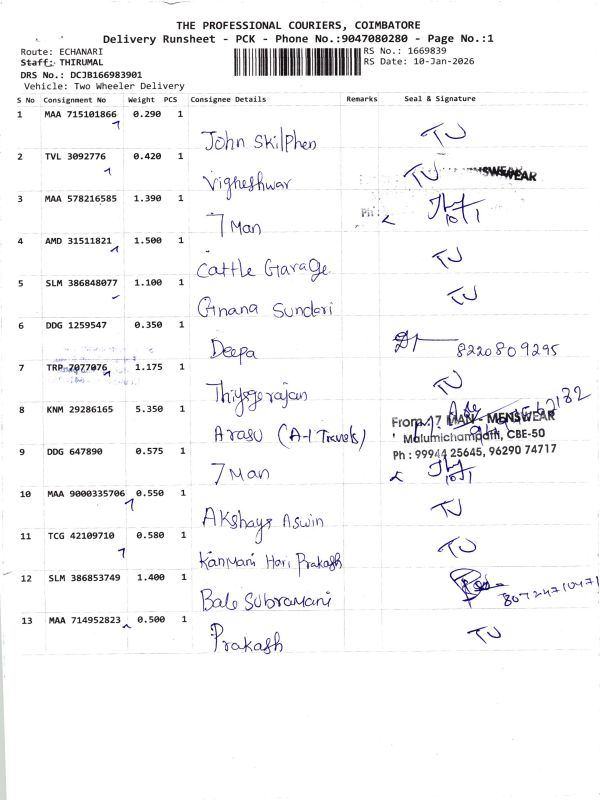 THE PROFESSIONAL COURIERS, COIMBATORE
Delivery Runsheet - PCK - Phone No.:9047080280 - Page No.:1
Route: ECHANARI
RS No.: 1669839
Staff: THIRUMAL
RS Date: 10-Jan-2026
DRS No.: DCJB166983901
Vehicle: Two Wheeler Delivery
S No Consignment No Weight PCS Consignee Details Remarks Seal & Signature
1 MAA 715101866 0.290 1
John Skilphen TJ
2 TVL 3092776 0.420 1
Vigheshwar TJ
MENSWEAR
3 MAA 578216585 1.390 1
7 Man 10/1
Ph :
4 AMD 31511821 1.500 1
Cattle Garage TJ
5 SLM 386848077 1.100 1
Gnana Sundari TJ
6 DDG 1259547 0.350 1
Deepa 8220809295
7 TRP 7077076 1.175 1
Thiyagerajan TJ
8 KNM 29286165 5.350 1
Arasu (A-1 Travels)
From. 7 MAN - MENSWEAR
Malumichampatti, CBE-50
Ph : 99944 25645, 96290 74717
9 DDG 647890 0.575 1
7 Man 10/1
10 MAA 9000335706 0.550 1
Akshaya Aswin TJ
11 TCG 42109710 0.580 1
Kanmani Hari Prakash TJ
12 SLM 386853749 1.400 1
Bala Subramani
13 MAA 714952823 0.500 1
Prakash TJ